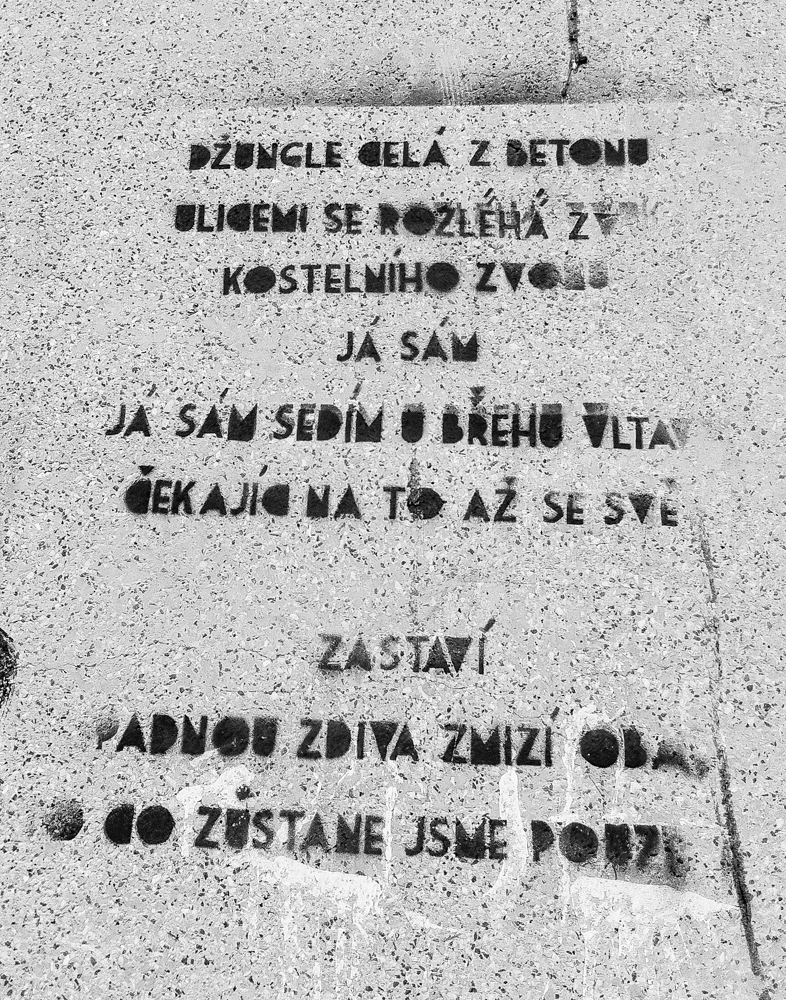 DŽUNGLE CELÁ Z BETONU
ULICEMI SE ROZLÉHÁ
KOSTELNÍHO ZVONU
JÁ SÁM
JÁ SÁM SEDÍM U BŘEHU VLTAV
ČEKAJÍC NA TO AŽ SE SVĚ
ZASTAVÍ
PADNOU ZDIVA ZMIZÍ
CO ZŮSTANE JSME POUZE